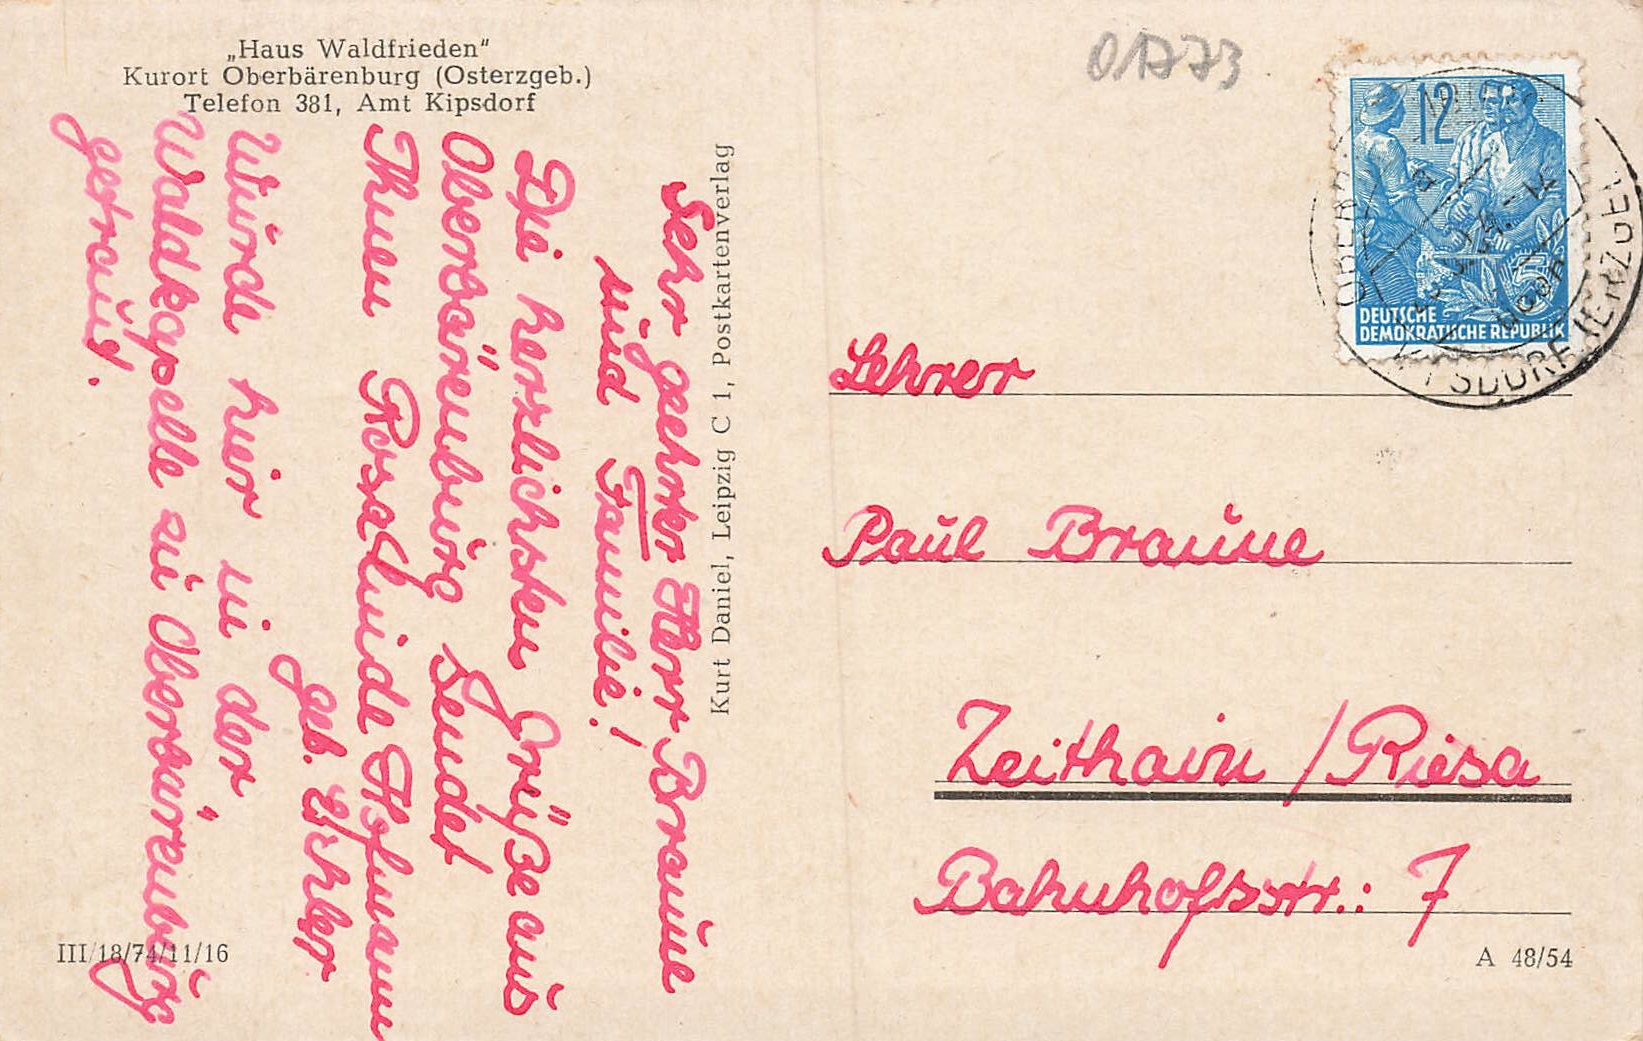 „Haus Waldfrieden“
Kurort Oberbärenburg (Osterzgeb.)
Telefon 381, Amt Kipsdorf
Sehr geehrter Herr Braune
und Familie!
Die herzlichsten Grüße aus
Oberbärenburg sendet
Ihnen Rosalinde Hofmann
geb.
Wurde hier in der
Waldkapelle zu Oberbärenburg
getraut.
III/18/74/11/16
Kurt Daniel, Leipzig C 1, Postkartenverlag
01773
12
5
DEUTSCHE
DEMOKRATISCHE REPUBLIK
Lehrer
Paul Braune
Zeithain / Riesa
Bahnhofsstr.: 7
A 48/54